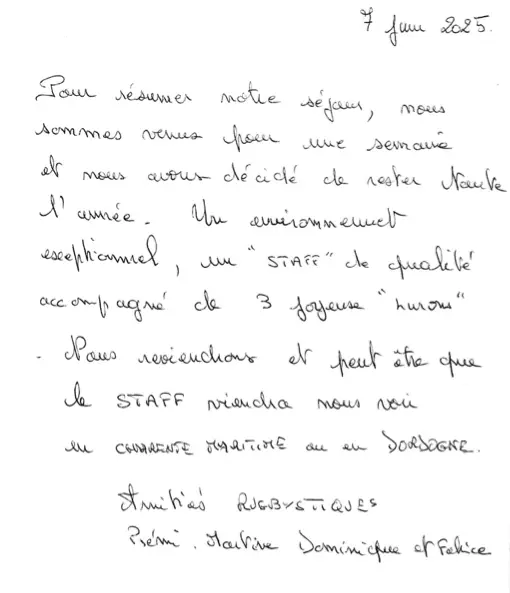 7 juin 2025.
Pour résumer notre séjour, nous
sommes venus pour une semaine
et nous avons décidé de rester toute
l'année. Un environnement
exceptionnel, un "STAFF" de qualité
accompagné de 3 joyeuse "lurons"
. Nous reviendrons et peut être que
le STAFF viendra nous voir
en CHARENTE MARITIME ou en DORDOGNE.
Amitiés RUGBYSTIQUES
Rémi. Martine Dominique et